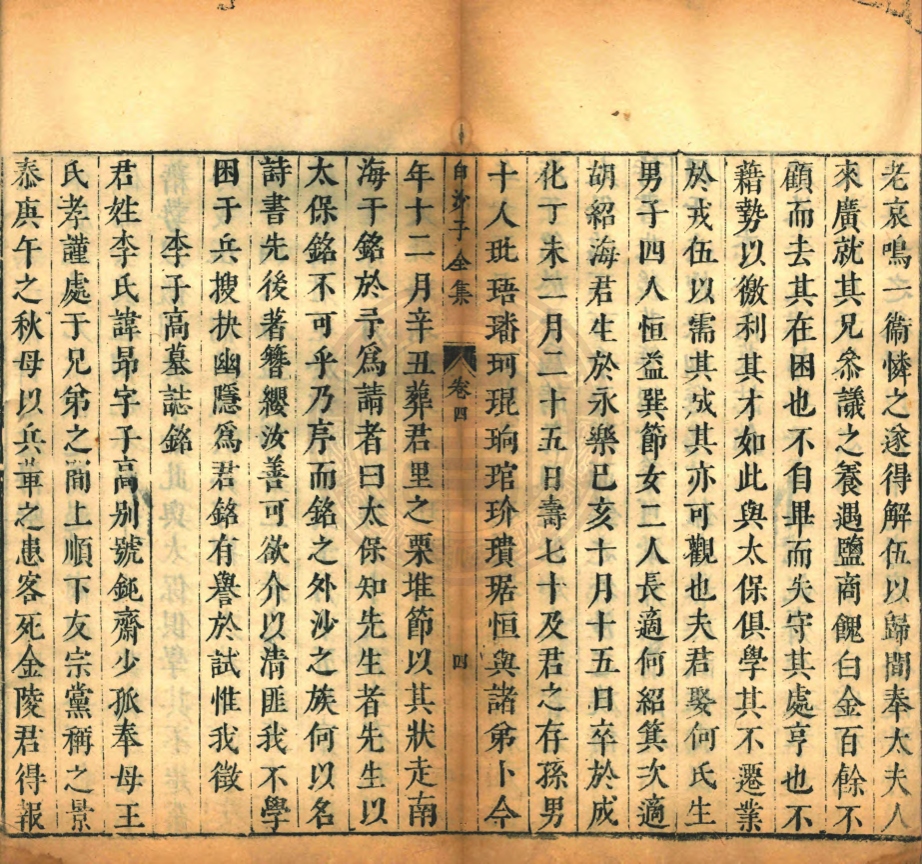 老哀鳴一衞憐之遂得解伍以歸間奉大夫人
來廣就其兄叅議之養遇鹽商餽白金百餘不
顧而去其在困也不自畢而失守其處亨也不
藉勢以徼利其才如此與太保俱學其不遷業
於戎伍以需其成其亦可觀也夫君娶何氏生
男子四人恒益巽節女二人長適何紹箕次適
胡紹海君生於永樂巳亥十月十五日卒於成
化丁未二月二十五日壽七十及君之存孫男
十人玭珸璠珂琨珦琯玠璝琚恒與諸弟卜今
白沙子全集 卷四 四
年十二月辛丑葬君里之栗堆節以其狀走南
海干銘於予爲請者曰太保知先生者先生以
太保銘不可乎乃序而銘之外沙之族何以名
詩書先後著簪纓汝善可欲介以清匪我不學
困于兵搜抉幽隱爲君銘有譽於試惟我徵
李子高墓誌銘
君姓李氏諱昻字子高别號鈍齋少孤奉母王
氏孝謹處于兄弟之間上順下友宗黨稱之景
泰庚午之秋母以兵革之患客死金陵君得報